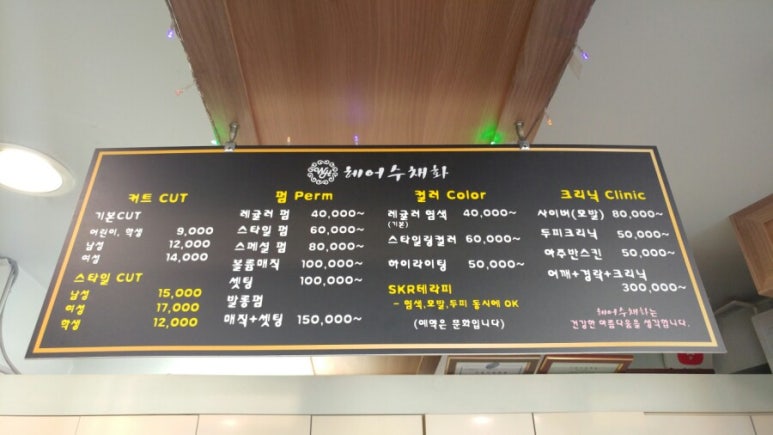 헤어수채화
커트 CUT
기본CUT
어린이, 학생 9,000
남성 12,000
여성 14,000
스타일 CUT
남성 15,000
여성 17,000
학생 12,000
펌 Perm
레귤러 펌 40,000~
스타일 펌 60,000~
스페셜 펌 80,000~
볼륨매직 100,000~
셋팅 100,000~
발롱펌
매직+셋팅 150,000~
컬러 Color
레귤러 염색 40,000~
(기본)
스타일링컬러 60,000~
하이라이팅 50,000~
SKR테라피
- 염색,모발,두피 동시에 OK
(예약은 문화입니다)
크리닉 Clinic
사이버(모발) 80,000~
두피크리닉 50,000~
아주반스킨 50,000~
어깨+경락+크리닉
300,000~
헤어수채화는
건강한 아름다움을 생각합니다.